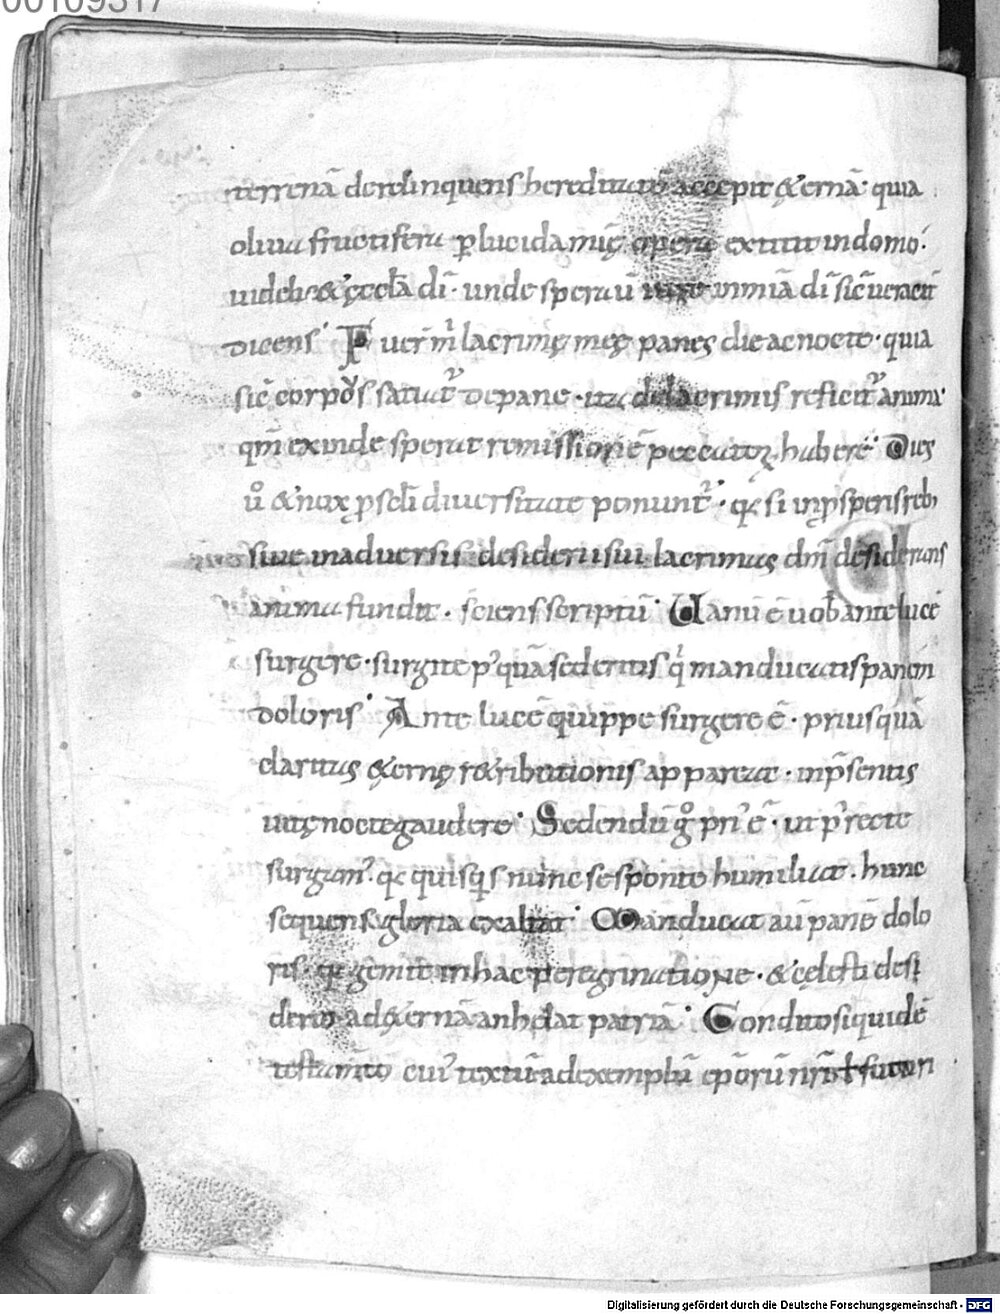 00109317
terrenā derelinquens hereditatē accepit &ernā· quia
oliua fructifera plucida mię opera extitit in domo·
uideli& ęccła dī· unde speraū in miā dī sic ueracit
dicens· Fuer̄ m̄ lacrimę meę panes die ac nocte· quia
sic corporis satiat̄ de pane· ita de lacrimis reficit̄ anima·
qm̄ exinde sperat remissionē peccatoꝝ habere· Dies
ū & nox p scłi diuersitate ponunt̄· qa si in psperis reb
siue in aduersis desiderii sui lacrimas dn̄i desiderans
anima fundit· sciens scriptū· Uanū ē uob ante lucē
surgere· surgite p quā sederitis q manducatis panem
doloris· Ante lucē quippe surgere ē· priusquā
claritas &ernę r&ributionis appareat· in psentis
uitę nocte gaudere· Sedendū g pri ē· ut p recte
surgam· qa quisqs nunc se sponte humiliat· hunc
sequens gloria exaltat· Manducat aū panē dolo
ris· qui gemit in hac peregrinatione· & cęlesti desi
derio ad &ernā anhelat patriā· Condito siquidē
testam̄to cui textū ad exemplū ep̄orū nr̄m ł futuri
Digitalisierung gefördert durch die Deutsche Forschungsgemeinschaft - DFG